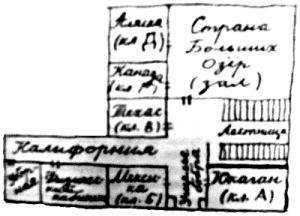 Аляска
(кл. Д)
Страна
Больших
Озер
(зал)
Канада
(кл. Г)
Техас
(кл. В)
Лестница
Калифорния
Мекси-
ка
(кл. Б)
Юкатан
(кл. А)